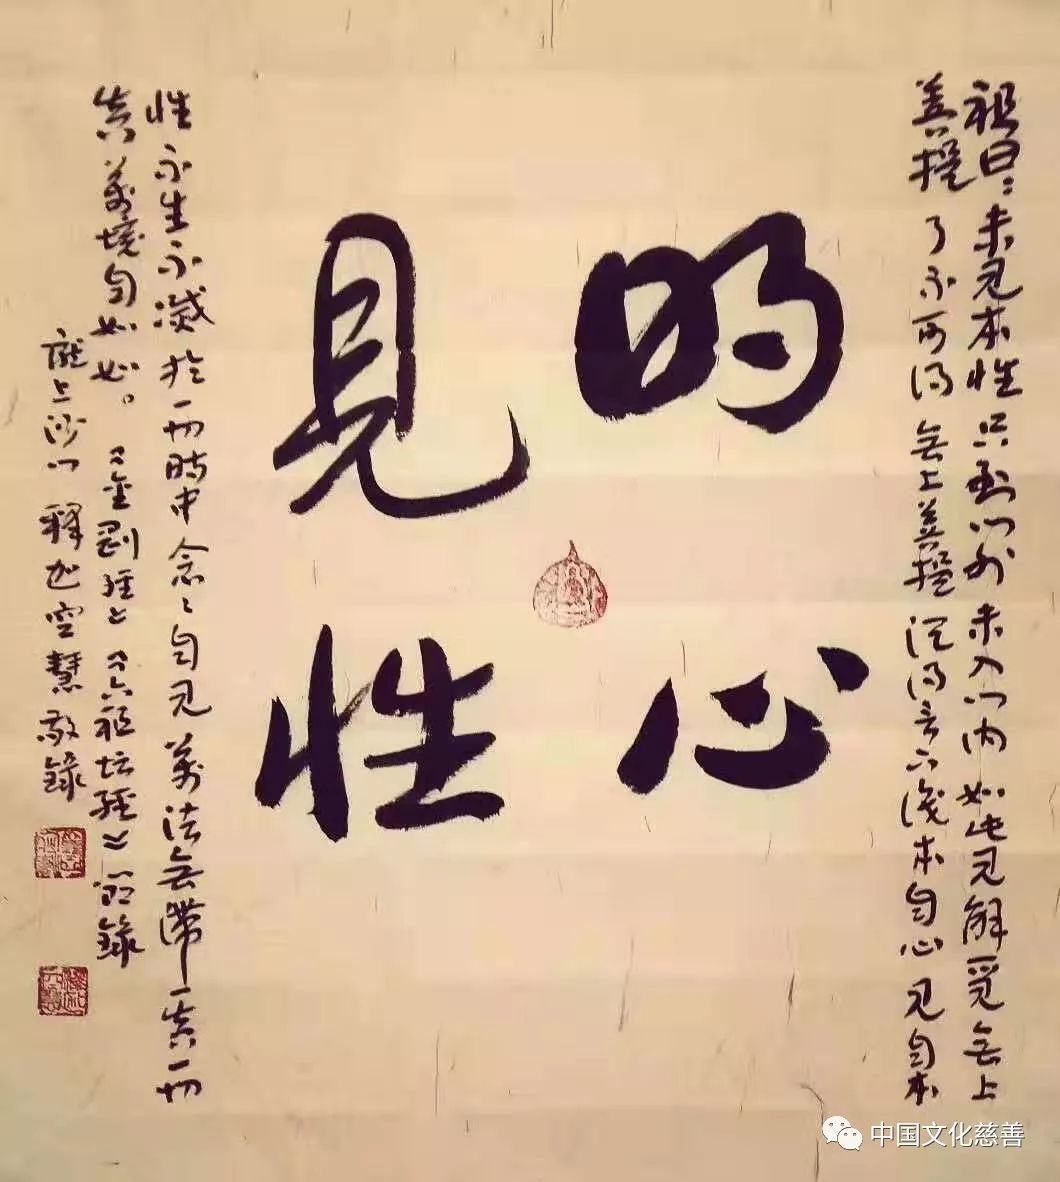 祖曰：未见本性只到门外未入门内如此见解覓無上
菩提了不可得無上菩提须得言下識本自心见自本
明心
見性
性不生不滅於一切時中念〻自见萬法無滯一真一切
真萬境自如如。《金剛經》《六祖坛經》節錄
隴上沙门釋空慧敬錄
中国文化慈善